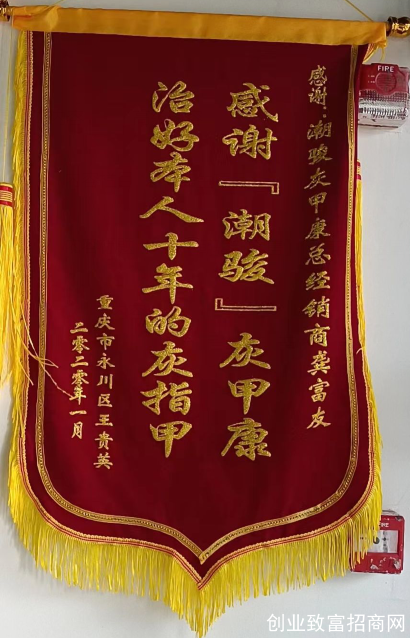 感谢:潮骏灰甲康总经销商龚富友
感谢『潮骏』灰甲康
治好本人十年的灰指甲
重庆市永川区王贵英
二零二零年一月
FIRE
创业致富招商网